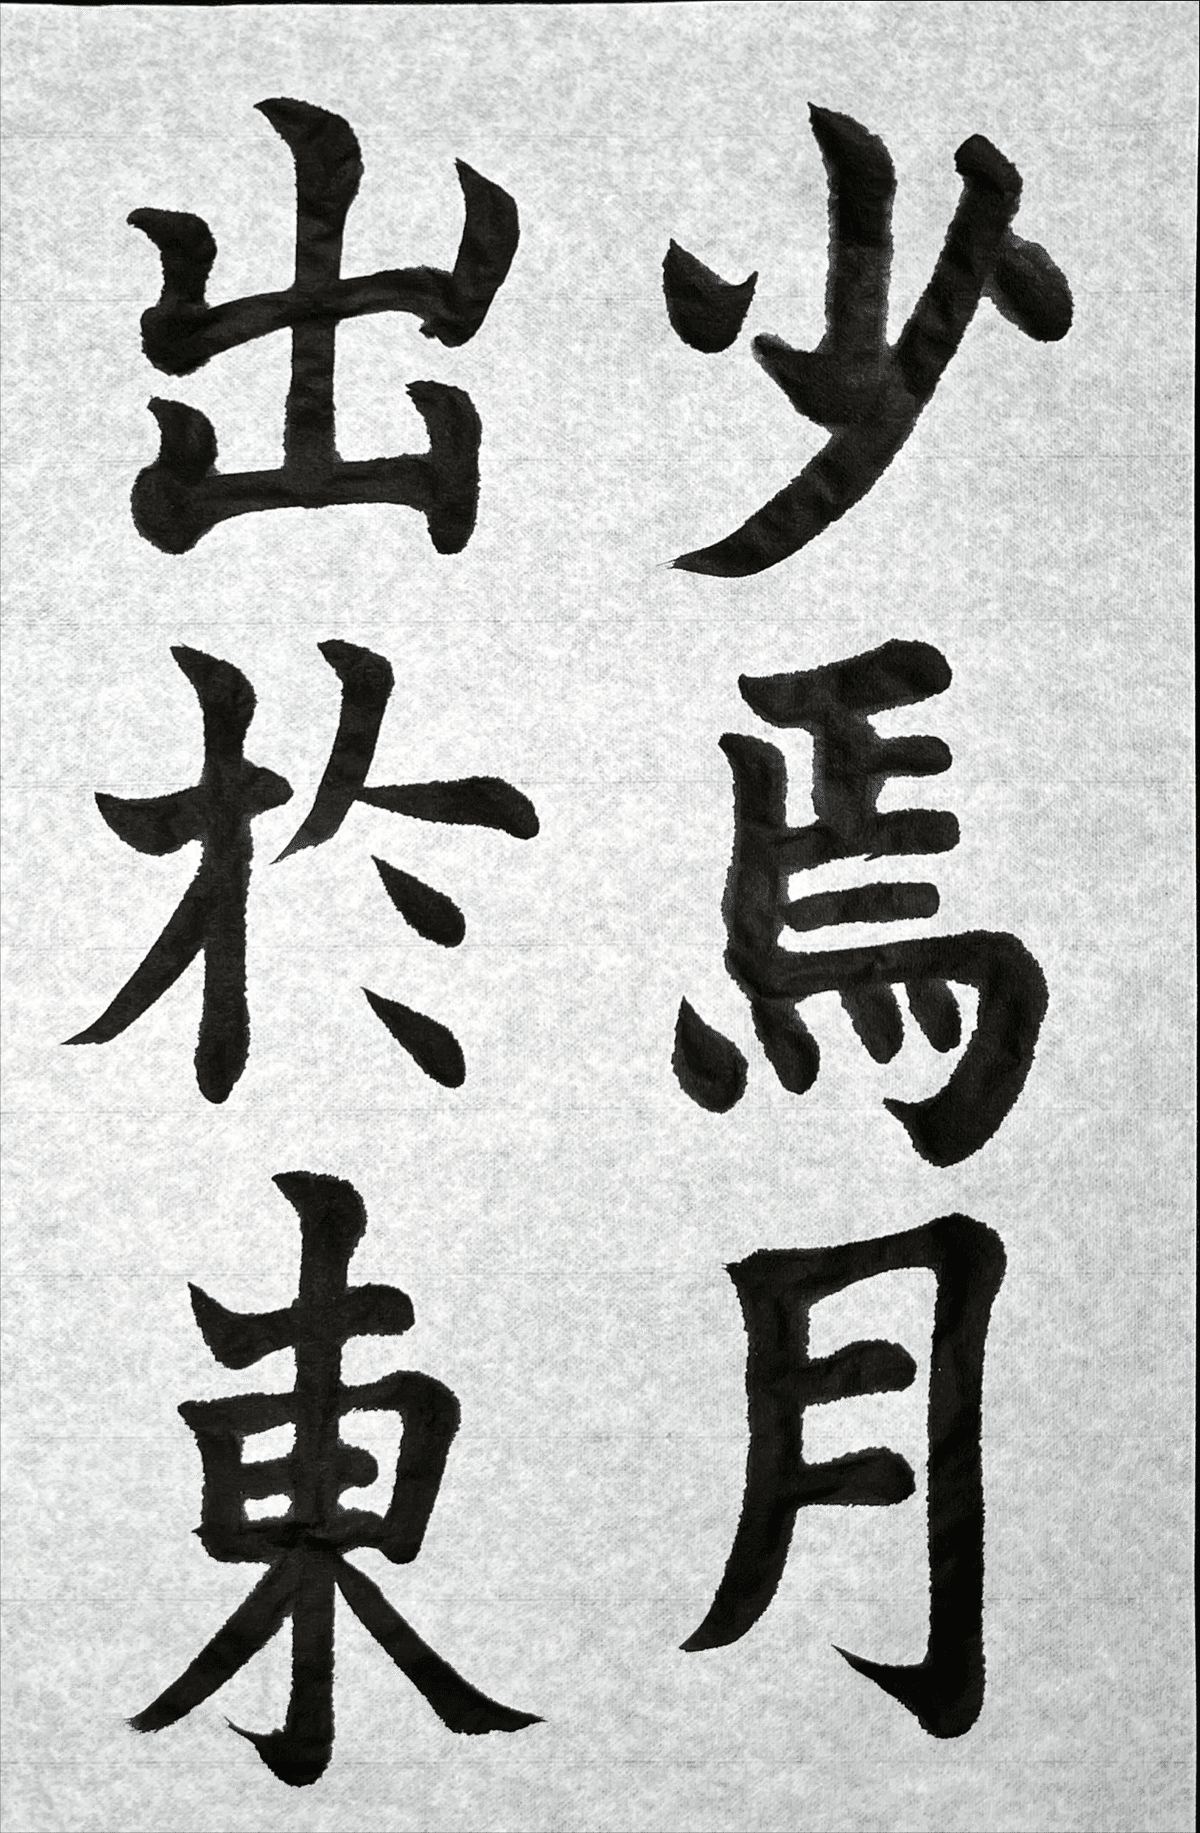 少焉月
出於東